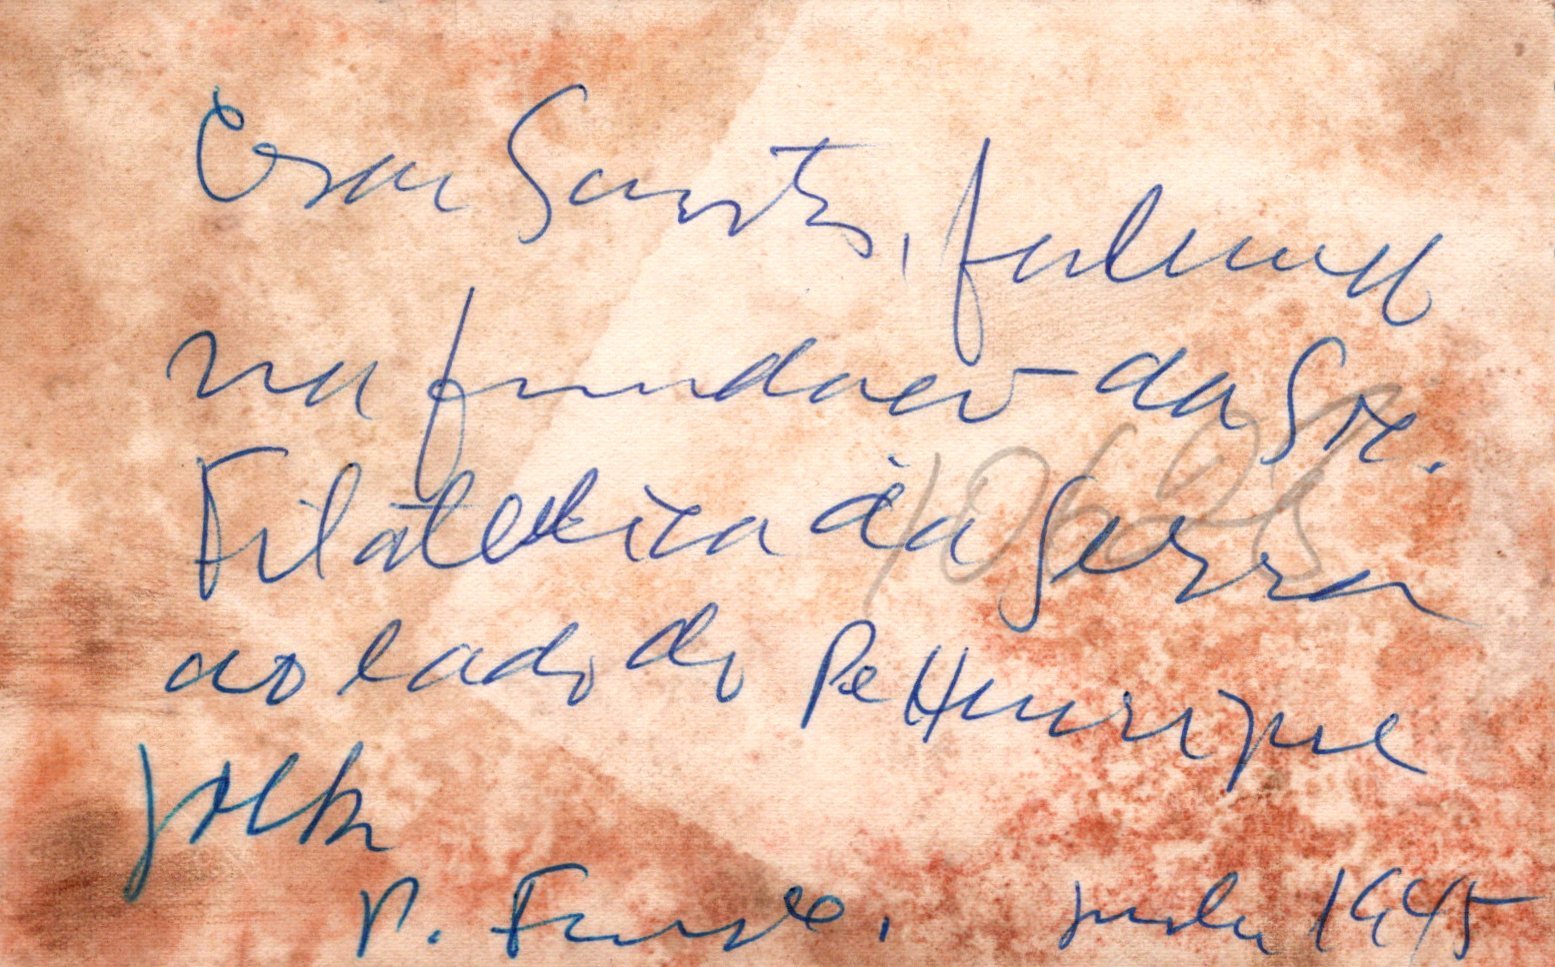 Cesar Santos, falando
na fundacao da Soc.
Filatelica da Serra
ao lado do Pe Henrique
P. Fundo, junho 1945
10628